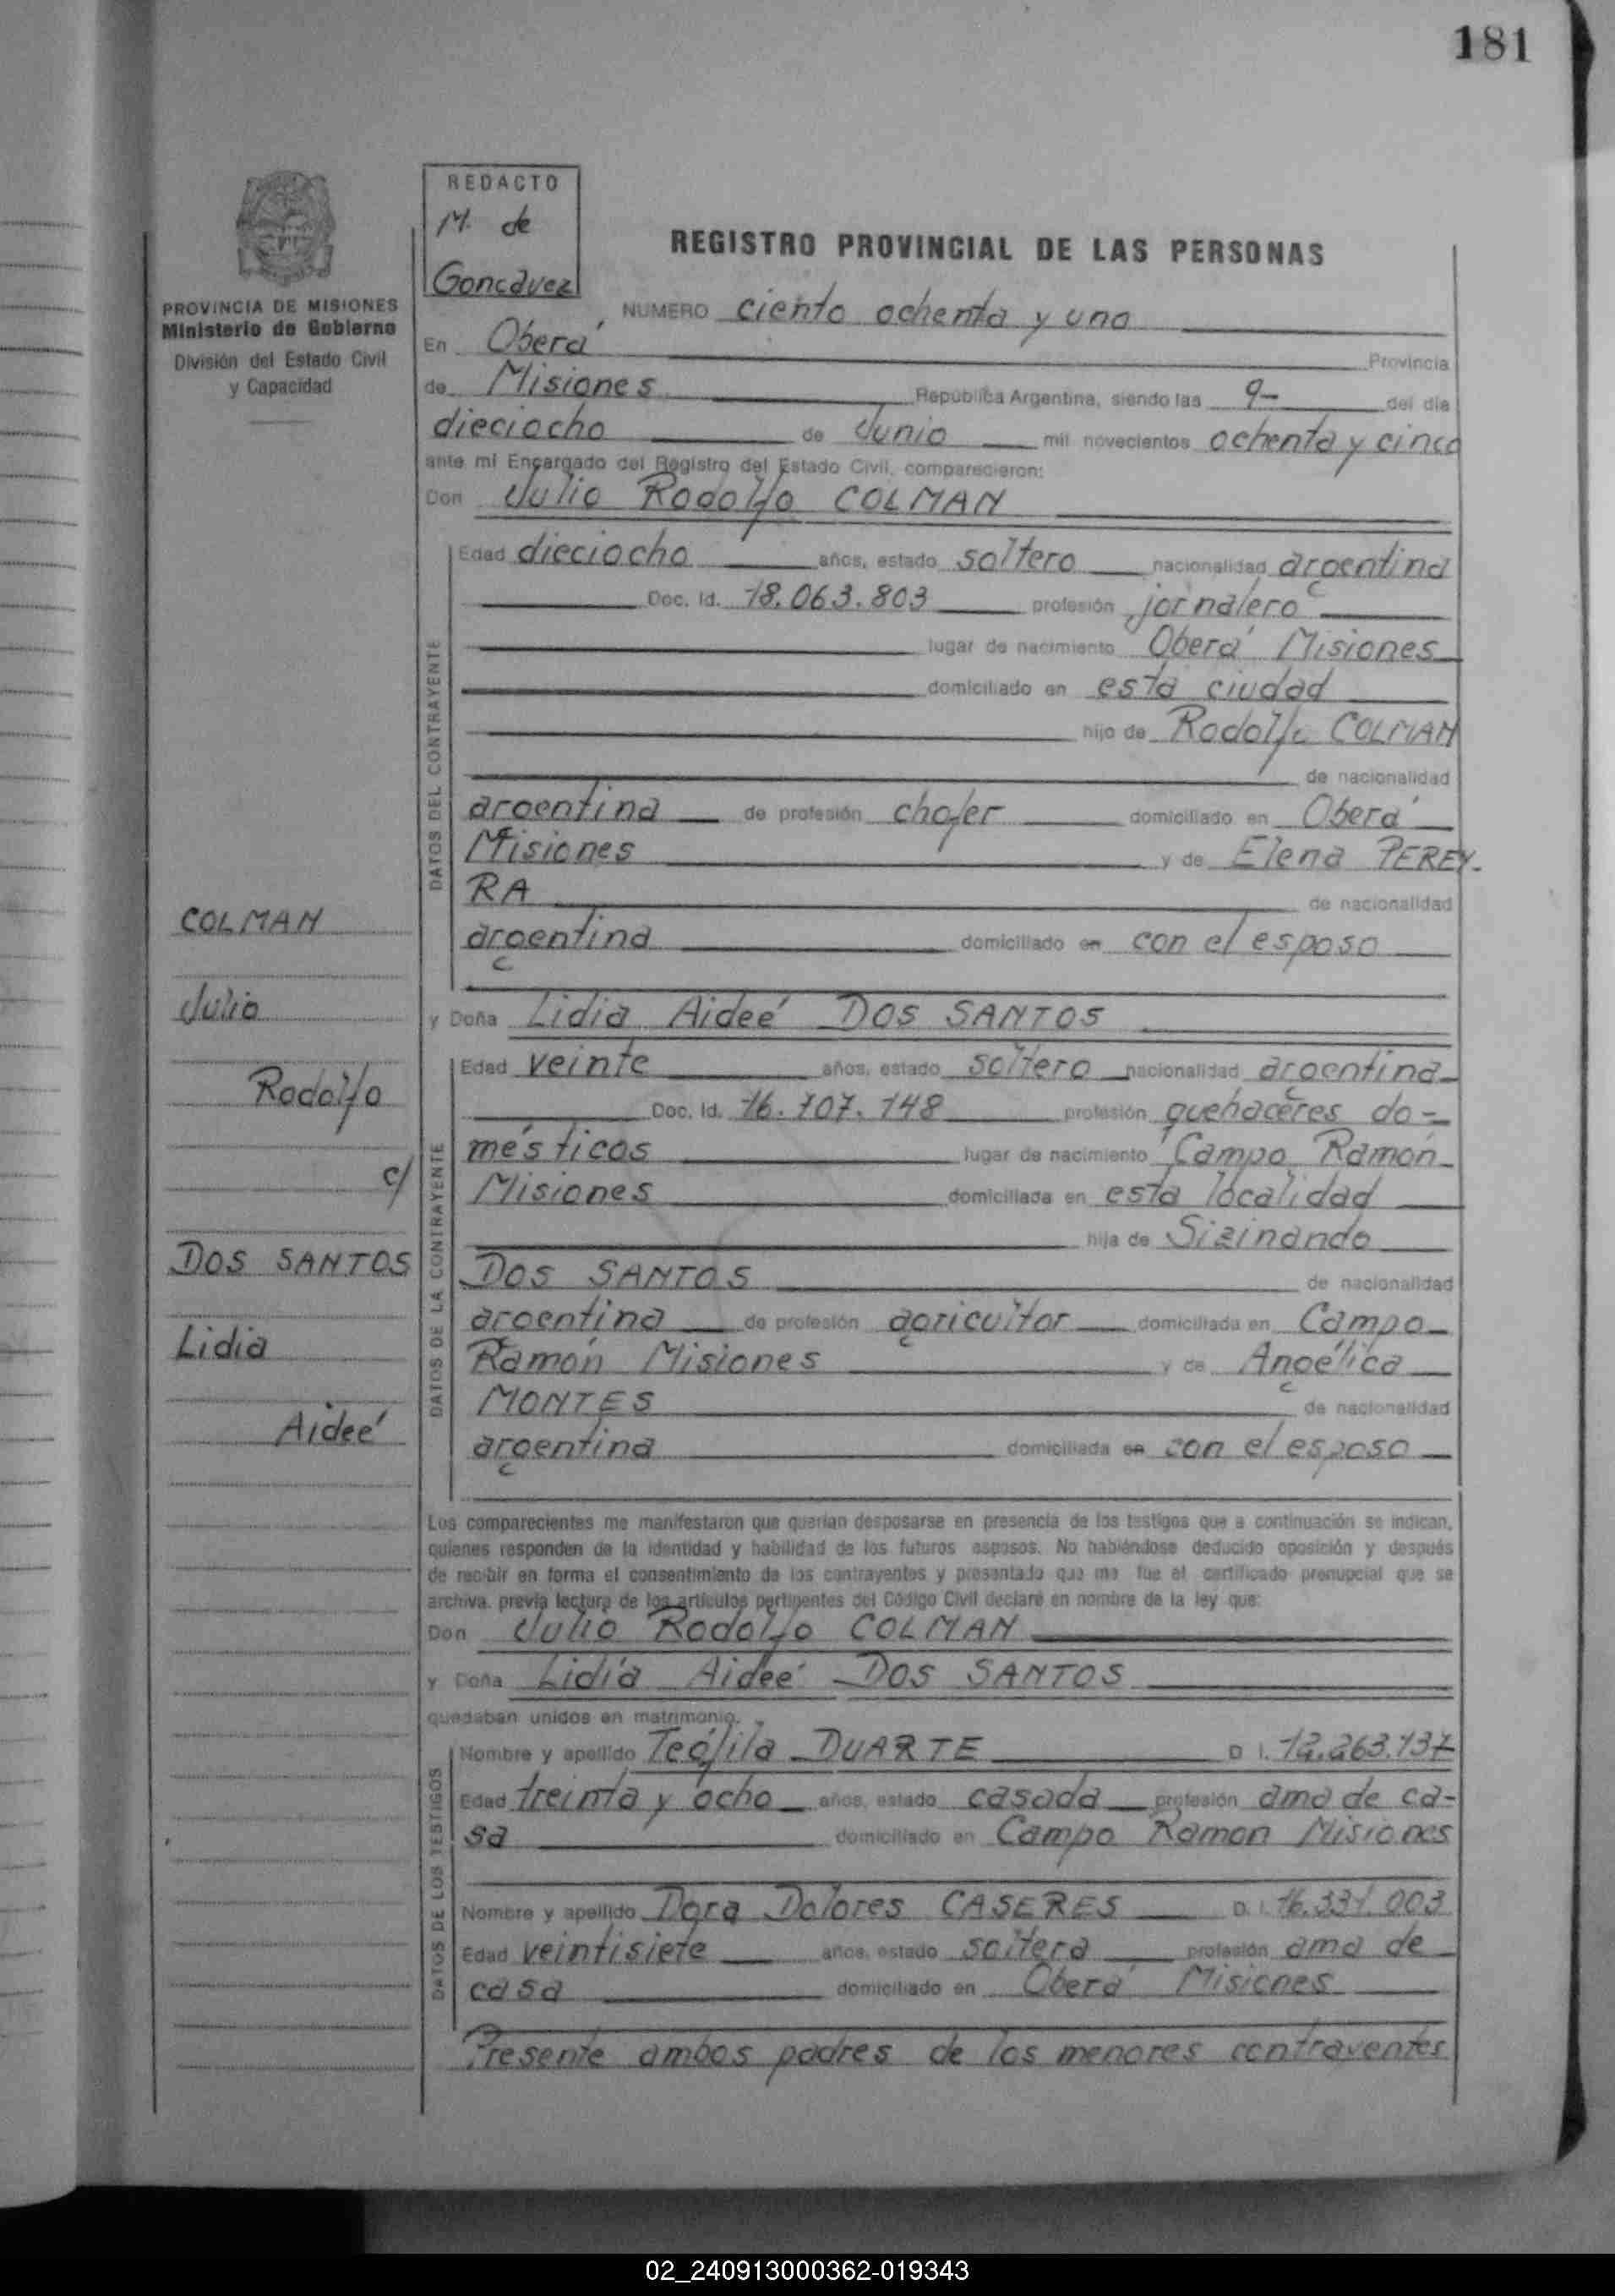 181
REDACTO
M. de
Goncalvez
REGISTRO PROVINCIAL DE LAS PERSONAS
PROVINCIA DE MISIONES
Ministerio de Gobierno
División del Estado Civil
y Capacidad
NUMERO ciento ochenta y uno
En Oberá Provincia
de Misiones República Argentina, siendo las 9- del día
dieciocho de Junio mil novecientos ochenta y cinco
ante mí Encargado del Registro del Estado Civil, comparecieron:
Don Julio Rodolfo COLMAN
DATOS DEL CONTRAYENTE
Edad dieciocho años, estado soltero nacionalidad argentina
Doc. Id. 18.063.803 profesión jornalero
lugar de nacimiento Oberá Misiones
domiciliado en esta ciudad
hijo de Rodolfo COLMAN
de nacionalidad
argentina de profesión chofer domiciliado en Oberá
Misiones y de Elena PEREY-
RA de nacionalidad
argentina domiciliado en con el esposo
y Doña Lidia Aideé DOS SANTOS
DATOS DE LA CONTRAYENTE
Edad veinte años, estado soltero nacionalidad argentina
Doc. Id. 16.107.148 profesión quehaceres do-
mésticos lugar de nacimiento Campo Ramón
Misiones domiciliada en esta localidad
hija de Sizinando
DOS SANTOS de nacionalidad
argentina de profesión agricultor domiciliada en Campo
Ramón Misiones y de Angélica
MONTES de nacionalidad
argentina domiciliada en con el esposo
COLMAN
Julio
Rodolfo
c/
DOS SANTOS
Lidia
Aideé
Los comparecientes me manifestaron que querían desposarse en presencia de los testigos que a continuación se indican,
quienes responden de la identidad y habilidad de los futuros esposos. No habiéndose deducido oposición y después
de recibir en forma el consentimiento de los contrayentes y presentado que me fue el certificado prenupcial que se
archiva, previa lectura de los artículos pertinentes del Código Civil declaré en nombre de la ley que:
Don Julio Rodolfo COLMAN
y Doña Lidia Aideé DOS SANTOS
quedaban unidos en matrimonio.
DATOS DE LOS TESTIGOS
Nombre y apellido Teófila DUARTE D I. 12.263.137
Edad treinta y ocho años, estado casada profesión ama de ca-
sa domiciliado en Campo Ramon Misiones
Nombre y apellido Dora Dolores CASERES D. I. 16.331.003
Edad veintisiete años, estado soltera profesión ama de
casa domiciliado en Oberá Misiones
Presente ambos padres de los menores contrayentes
02_240913000362-019343